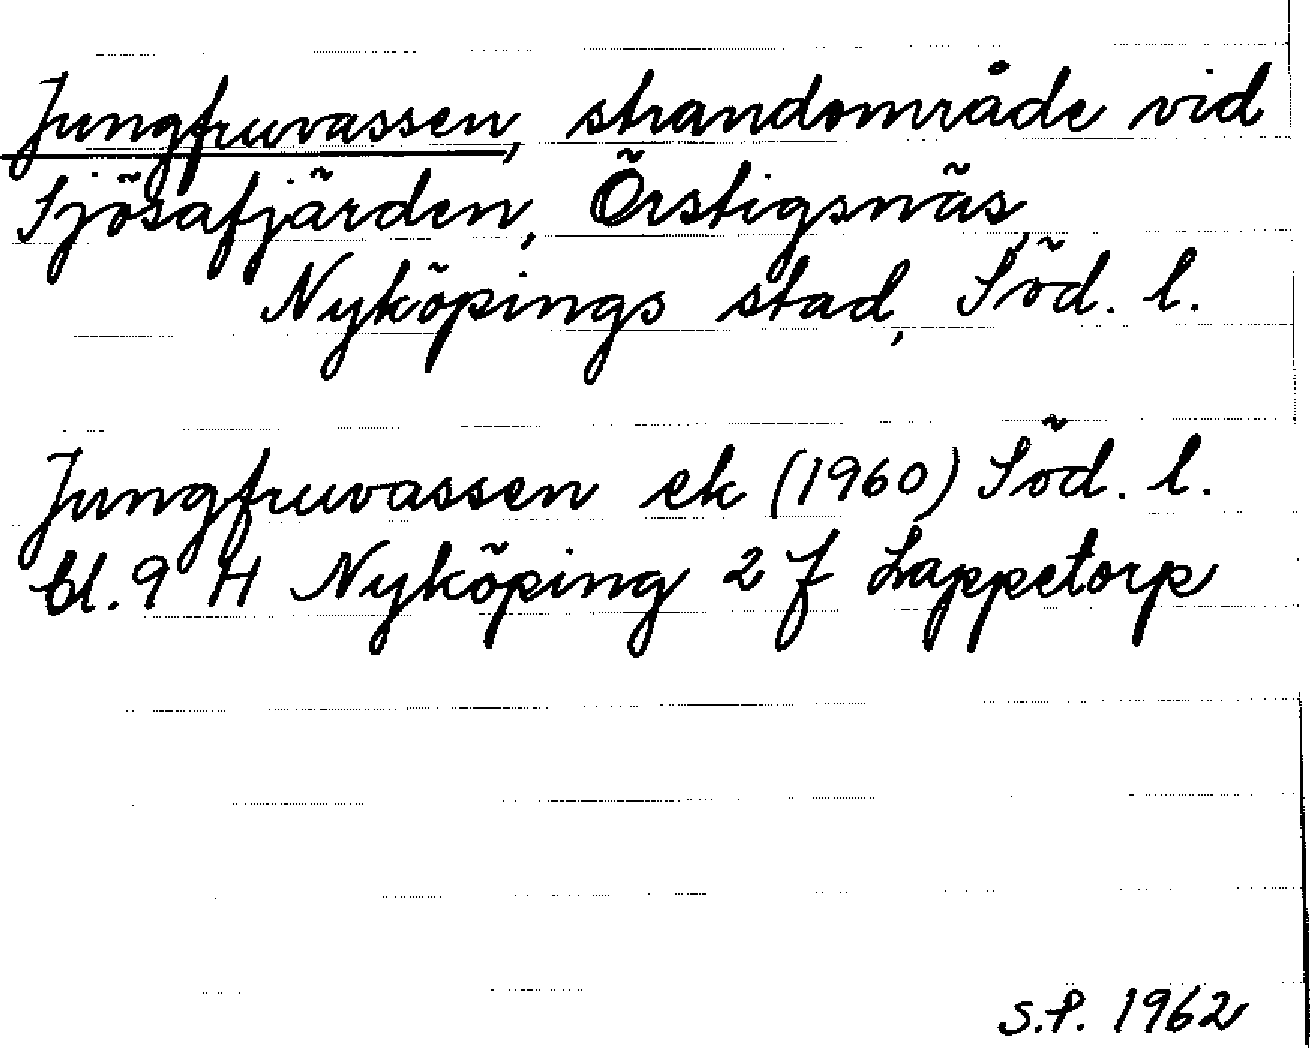 Jungfruvassen, strandområde vid
Sjösafjärden, Örstigsnäs,
Nyköpings stad, Söd. l.
Jungfruvassen ek (1960) Söd. l.
bl. 9 H Nyköping 2 f Lappetorp
S.P. 1962